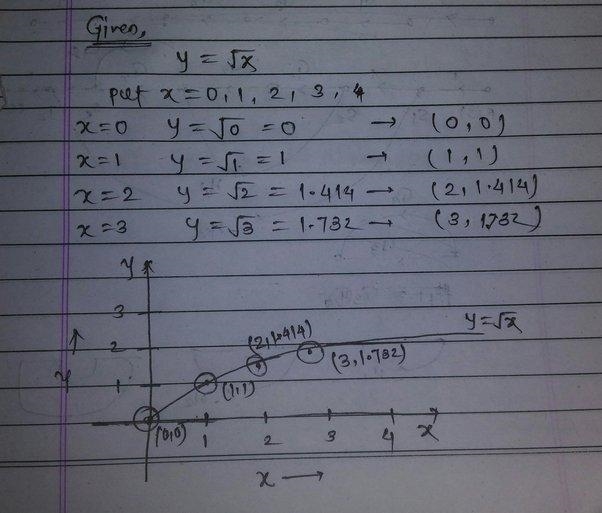 Given,
y = √x
put x = 0, 1, 2, 3, 4
x=0 y = √0 = 0 → (0, 0)
x=1 y = √1 = 1 → (1, 1)
x=2 y = √2 = 1.414 → (2, 1.414)
x=3 y = √3 = 1.732 → (3, 1732)
y
3
y=√x
(2,1.414)
2
(3,1.732)
y ↑
1
(1,1)
(0,0) 1 2 3 4 x
x →